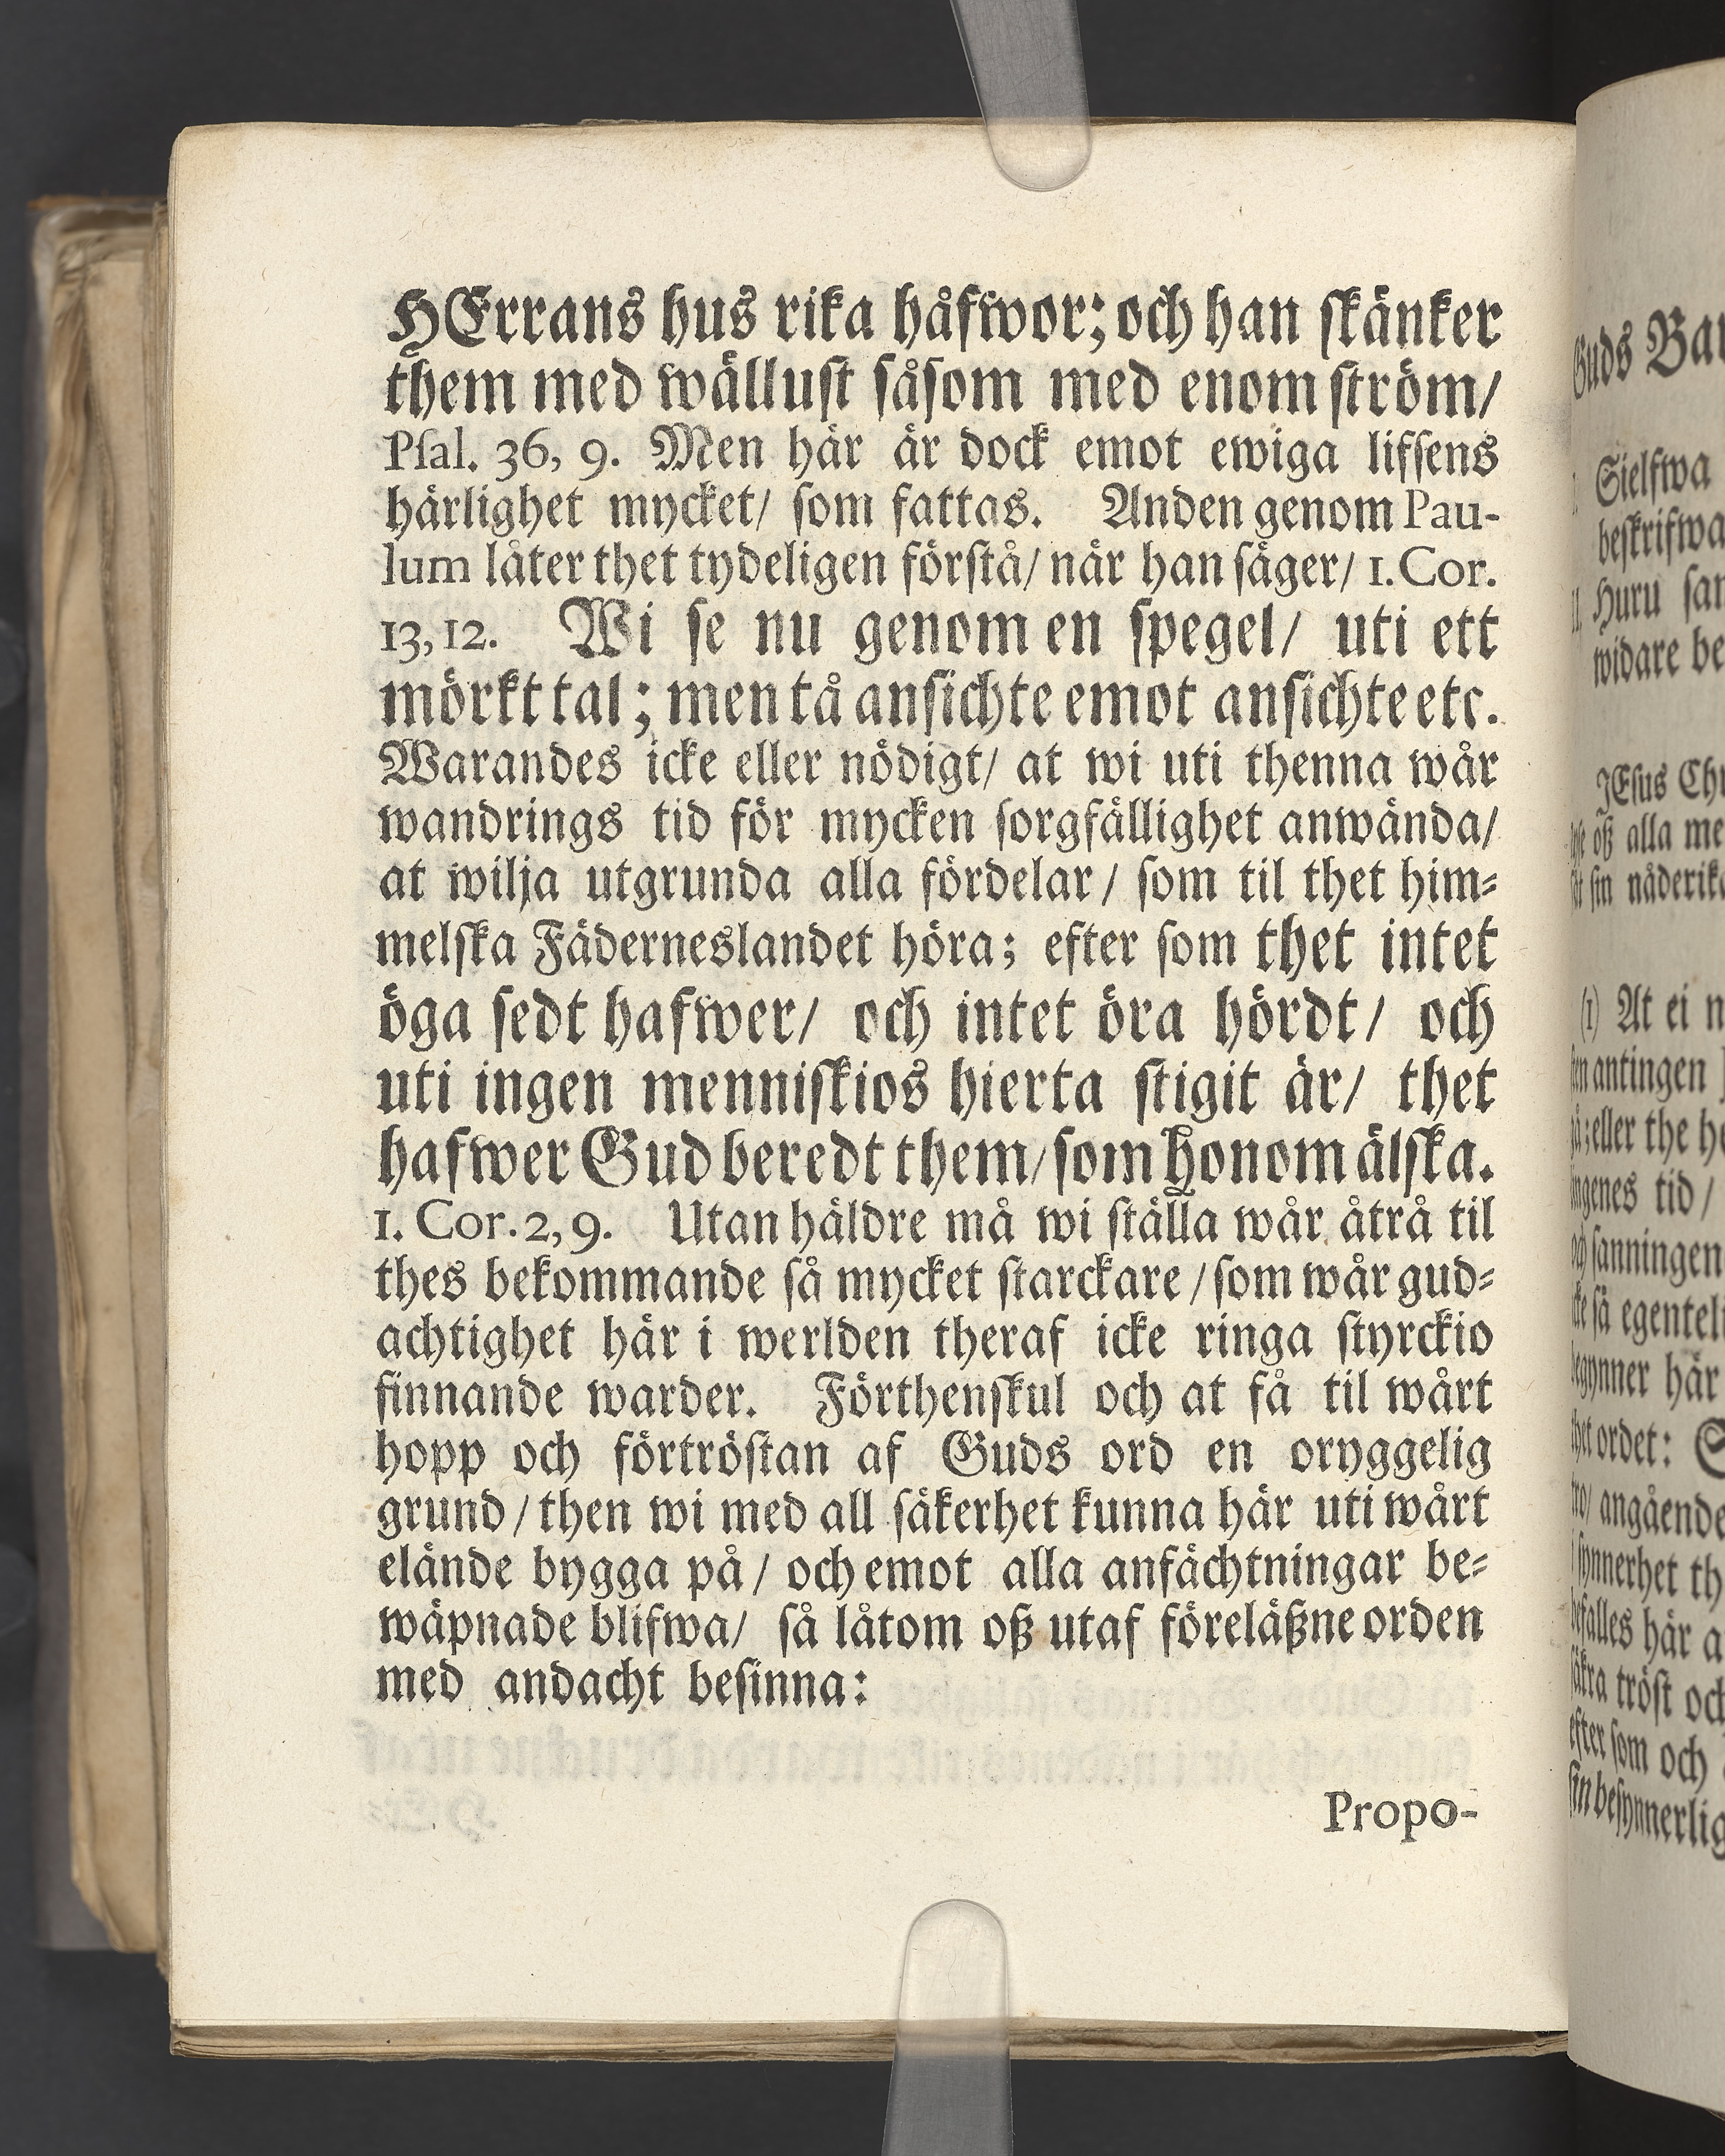 HErrans hus rika håfwor; och han skänker
them med wällust såsom med enom ström/
Psal. 36, 9. Men här är dock emot ewiga lifsens
härlighet mycket/ som fattas. Anden genom Pau-
lum låter thet tydeligen förstå/ när han säger/ 1. Cor.
13, 12. Wi se nu genom en spegel/ uti ett
mörkt tal; men tå ansichte emot ansichte etc.
Warandes icke eller nödigt/ at wi uti thenna wår
wandrings tid för mycken sorgfällighet anwända/
at wilja utgrunda alla fördelar/ som til thet him-
melska Fäderneslandet höra; efter som thet intet
öga sedt hafwer/ och intet öra hördt/ och
uti ingen menniskios hierta stigit är/ thet
hafwer Gud beredt them/ som honom älska.
1. Cor. 2, 9. Utan häldre må wi ställa wår åtrå til
thes bekommande så mycket starckare/ som wår gud-
achtighet här i werlden theraf icke ringa styrckio
finnande warder. Förthenskul och at få til wårt
hopp och förtröstan af Guds ord en oryggelig
grund/ then wi med all säkerhet kunna här uti wårt
elände bygga på/ och emot alla anfächtningar be-
wäpnade blifwa/ så låtom oß utaf föreläßne orden
med andacht besinna:
Propo-
Guds
Sielfwa
beskrifwa
Huru
widare
JEsus
oß alla
sin
(1) At ei
antingen
eller the
tid/
sanningen
så
här
ordet:
angående
här
tröst
som och